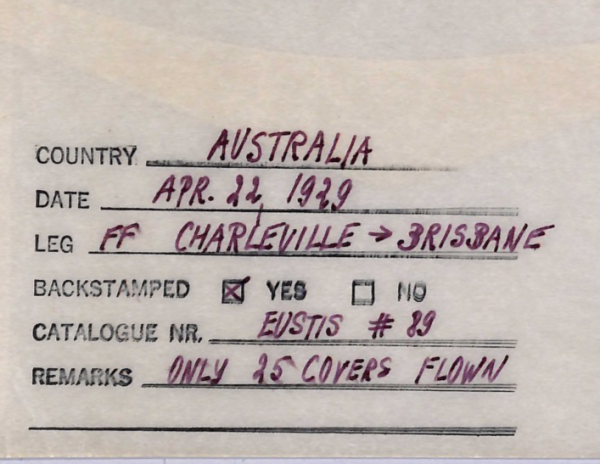 COUNTRY AUSTRALIA
DATE APR. 22, 1929
LEG FF CHARLEVILLE → BRISBANE
BACKSTAMPED ☒ YES ☐ NO
CATALOGUE NR. EUSTIS # 89
REMARKS ONLY 25 COVERS FLOWN